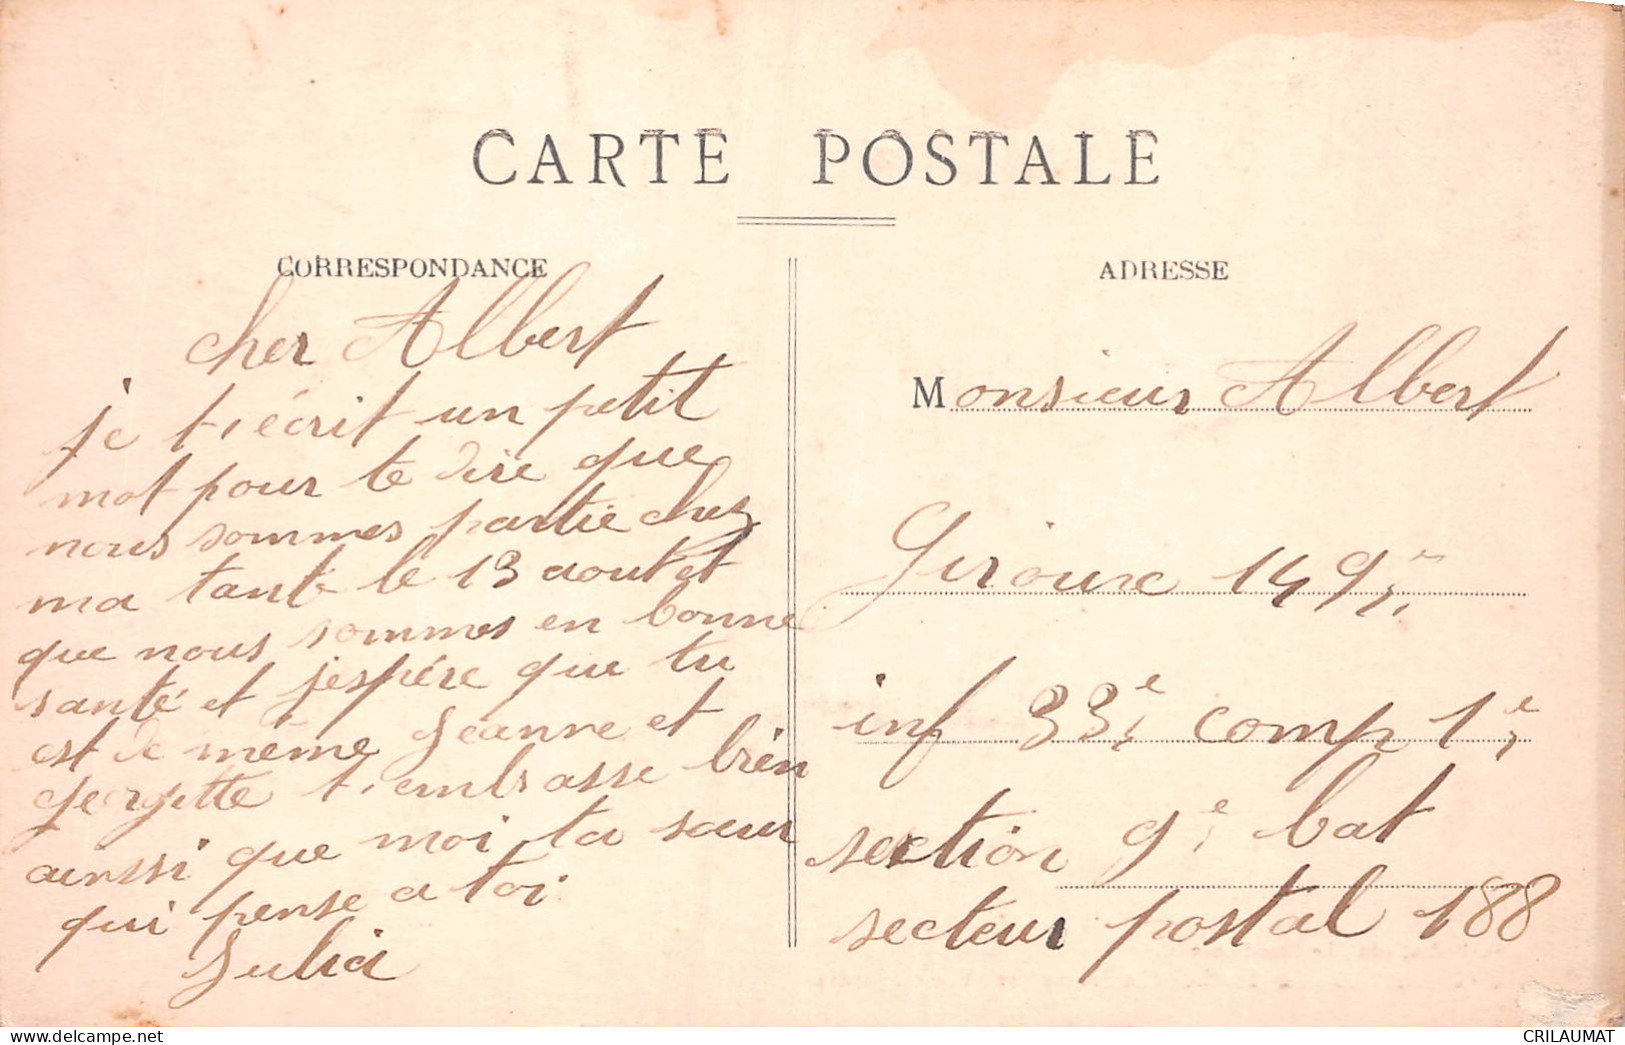 CARTE POSTALE
CORRESPONDANCE
cher Albert
je t, écrit un petit
mot pour te dire que
nous sommes partie chez
ma tante le 13 aout et
que nous sommes en bonne
santé et j'espére que tu
est de même Jeanne et
Georgette t, embrasse bien
ainssi que moi ta sœur
qui pense a toi
Julia
ADRESSE
Monsieur Albert
Giroux 149
inf 33e comp 1e
section 9e bat
secteur postal 188
CRILAUMAT